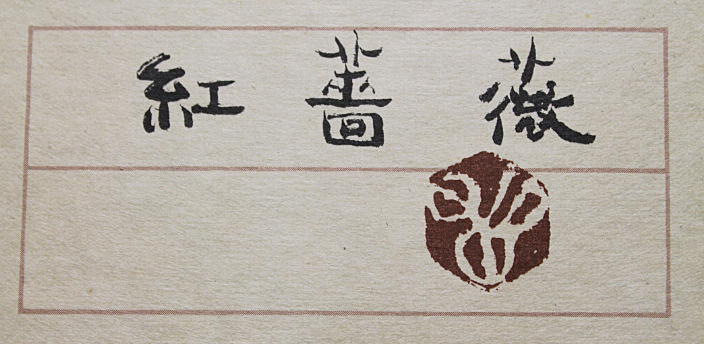 紅薔薇